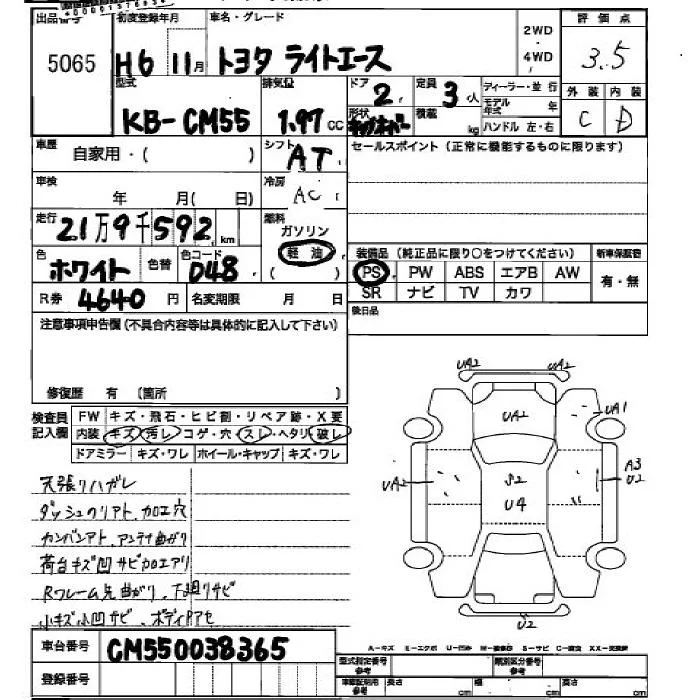 出品番号 初度登録年月 車名・グレード 2WD・4WD 評価点
5065 H6 11月 トヨタ ライトエース 3.5
型式 排気量 ドア 定員 ディーラー・並行 外装 内装
KB-CM55 1.97cc 2 3人 モデル年式 年 C D
形状 積載 kg ハンドル 左・右
車歴 自家用・( ) シフト AT セールスポイント(正常に機能するものに限ります)
車検 年 月( 日) 冷房 AC
走行 21万9千592km 燃料 ガソリン
軽油
( )
装備品(純正品に限り○をつけてください) 新車保証書
色 ホワイト 色替 色コード 048 PS PW ABS エアB AW 有・無
R券 4640円 名変期限 月 日 SR ナビ TV カワ
後日品
注意事項申告欄(不具合内容等は具体的に記入して下さい)
修復歴 有 〔箇所 〕
検査員記入欄 FW キズ・飛石・ヒビ割・リペア跡・X要
内装 キズ・汚レ・コゲ・穴・スレ・ヘタリ・破レ
ドアミラー キズ・ワレ ホイール・キャップ キズ・ワレ
UA2 UA2
UA2 UA1
UA2 S2 U4 A3 U2
U2
天張リハガレ
ダッシュのリアト、加工穴
カンバンアト、アンテナ曲がり
荷台キズ凹サビカロエアリ
Rフレーム先曲がり、下廻リサビ
小キズ小凹サビ、ボディアセ
A-キズ E-エクボ U-凹み W-補修跡 S-サビ C-腐食 XX-交換済
車台番号 CM550038365
型式指定番号 類別区分番号
登録番号 車庫証明用参考 長さ cm 幅 cm 高さ cm